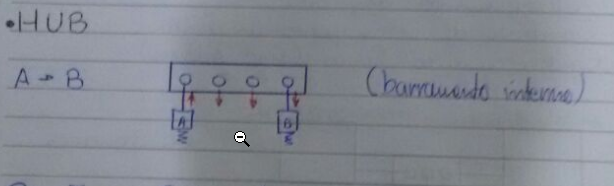 • HUB
A → B (barramento interno)
A B